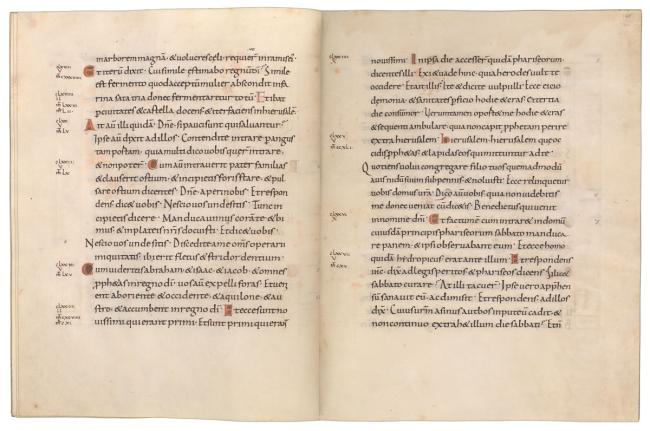 in arborem magnã · & volucres cęli requier in ramis eiˀ
Et iterũ dixit · Cui simile estimabo regnũ dĩ · Simile
est fermento quod acceptũ mulier abscondit in fa
rina sata tria donec fermentar&ur totũ · Et ibat
per ciuitates & castella docens & iter faciens in hierusalẽ ·
Ait aũ illi quidã · Dñe · si pauci sunt qui saluantur ?
Ipse aũ dixit ad illos · Contendite intrare per angus
tam portam · quia multi dico uobis quęrent intrare ·
& non poter · Cum aũ intrauerit pater familias
& clauserit ostium · & incipietis foris stare · & pul
sare ostium dicentes · Dñe aperi nobis · Et respon
dens dic& uobis · Nescio uos unde sitis · Tunc in
cipietis dicere · Manducauimus corã te & bi
bimus · & in plateis nr̃is docuisti · Et dic& uobis ·
Nescio uos unde sitis · Discedite a me om̃s operarii
iniquitatis · ibi erit fl&us & stridor dentium ·
Cum uideritis abraham · & isaac · & iacob · & omnes
pph&as in regno dĩ · uos aũ expelli foras · Et ueni
ent ab oriente & occidente · & aquilone · & au
stro · & accumbent in regno dĩ · Et ecce sunt no
uissimi qui erant primi · Et sunt primi qui erant
nouissimi · In ipsa die accesser quidã phariseorum
dicentes illi · Exi & uade hinc · quia herodes uult te
occidere · Et ait illis · Ite & dicite uulpi illi · Ecce eicio
demonia · & sanitates pficio hodie & cras · & tertia
die consũmor · Ueruntamen oport& me hodie & cras
& sequenti ambulare · quia non capit pph&am perire
extra hierusalem · Hierusalem hierusalem que oc
cidis pph&as · & lapidas eos qui mittuntur ad te ·
Quotiens uolui congregare filios tuos quemadmodũ
auis nidũ suum sub pennis · & noluisti · Ecce relinqu&ur
uobis domus ur̃a · Dico aũ uobis quia non uidebitis
me donec ueniat cũ dic&is · Benedictus qui uenit
in nomine dñi · Et factum ẽ cum intrar& in domũ
cuiusdã principis phariseorum sabbato manduca
re panem · & ipsi obseruabant eum · Et ecce homo
quidã hydropicus erat ante illum · Et respondens
ihc · dix̃ ad legis peritos & phariseos dicens · Si lic&
sabbato curare · At illi tacuer · Ipse uero appreh̃en
sũ sanauit eũ · ac dimisit · Et respondens ad illos
dix̃ · Cuius ur̃m asinus aut bos in puteũ cad& · &
non continuo extrah& illum die sabbati · Et ñ